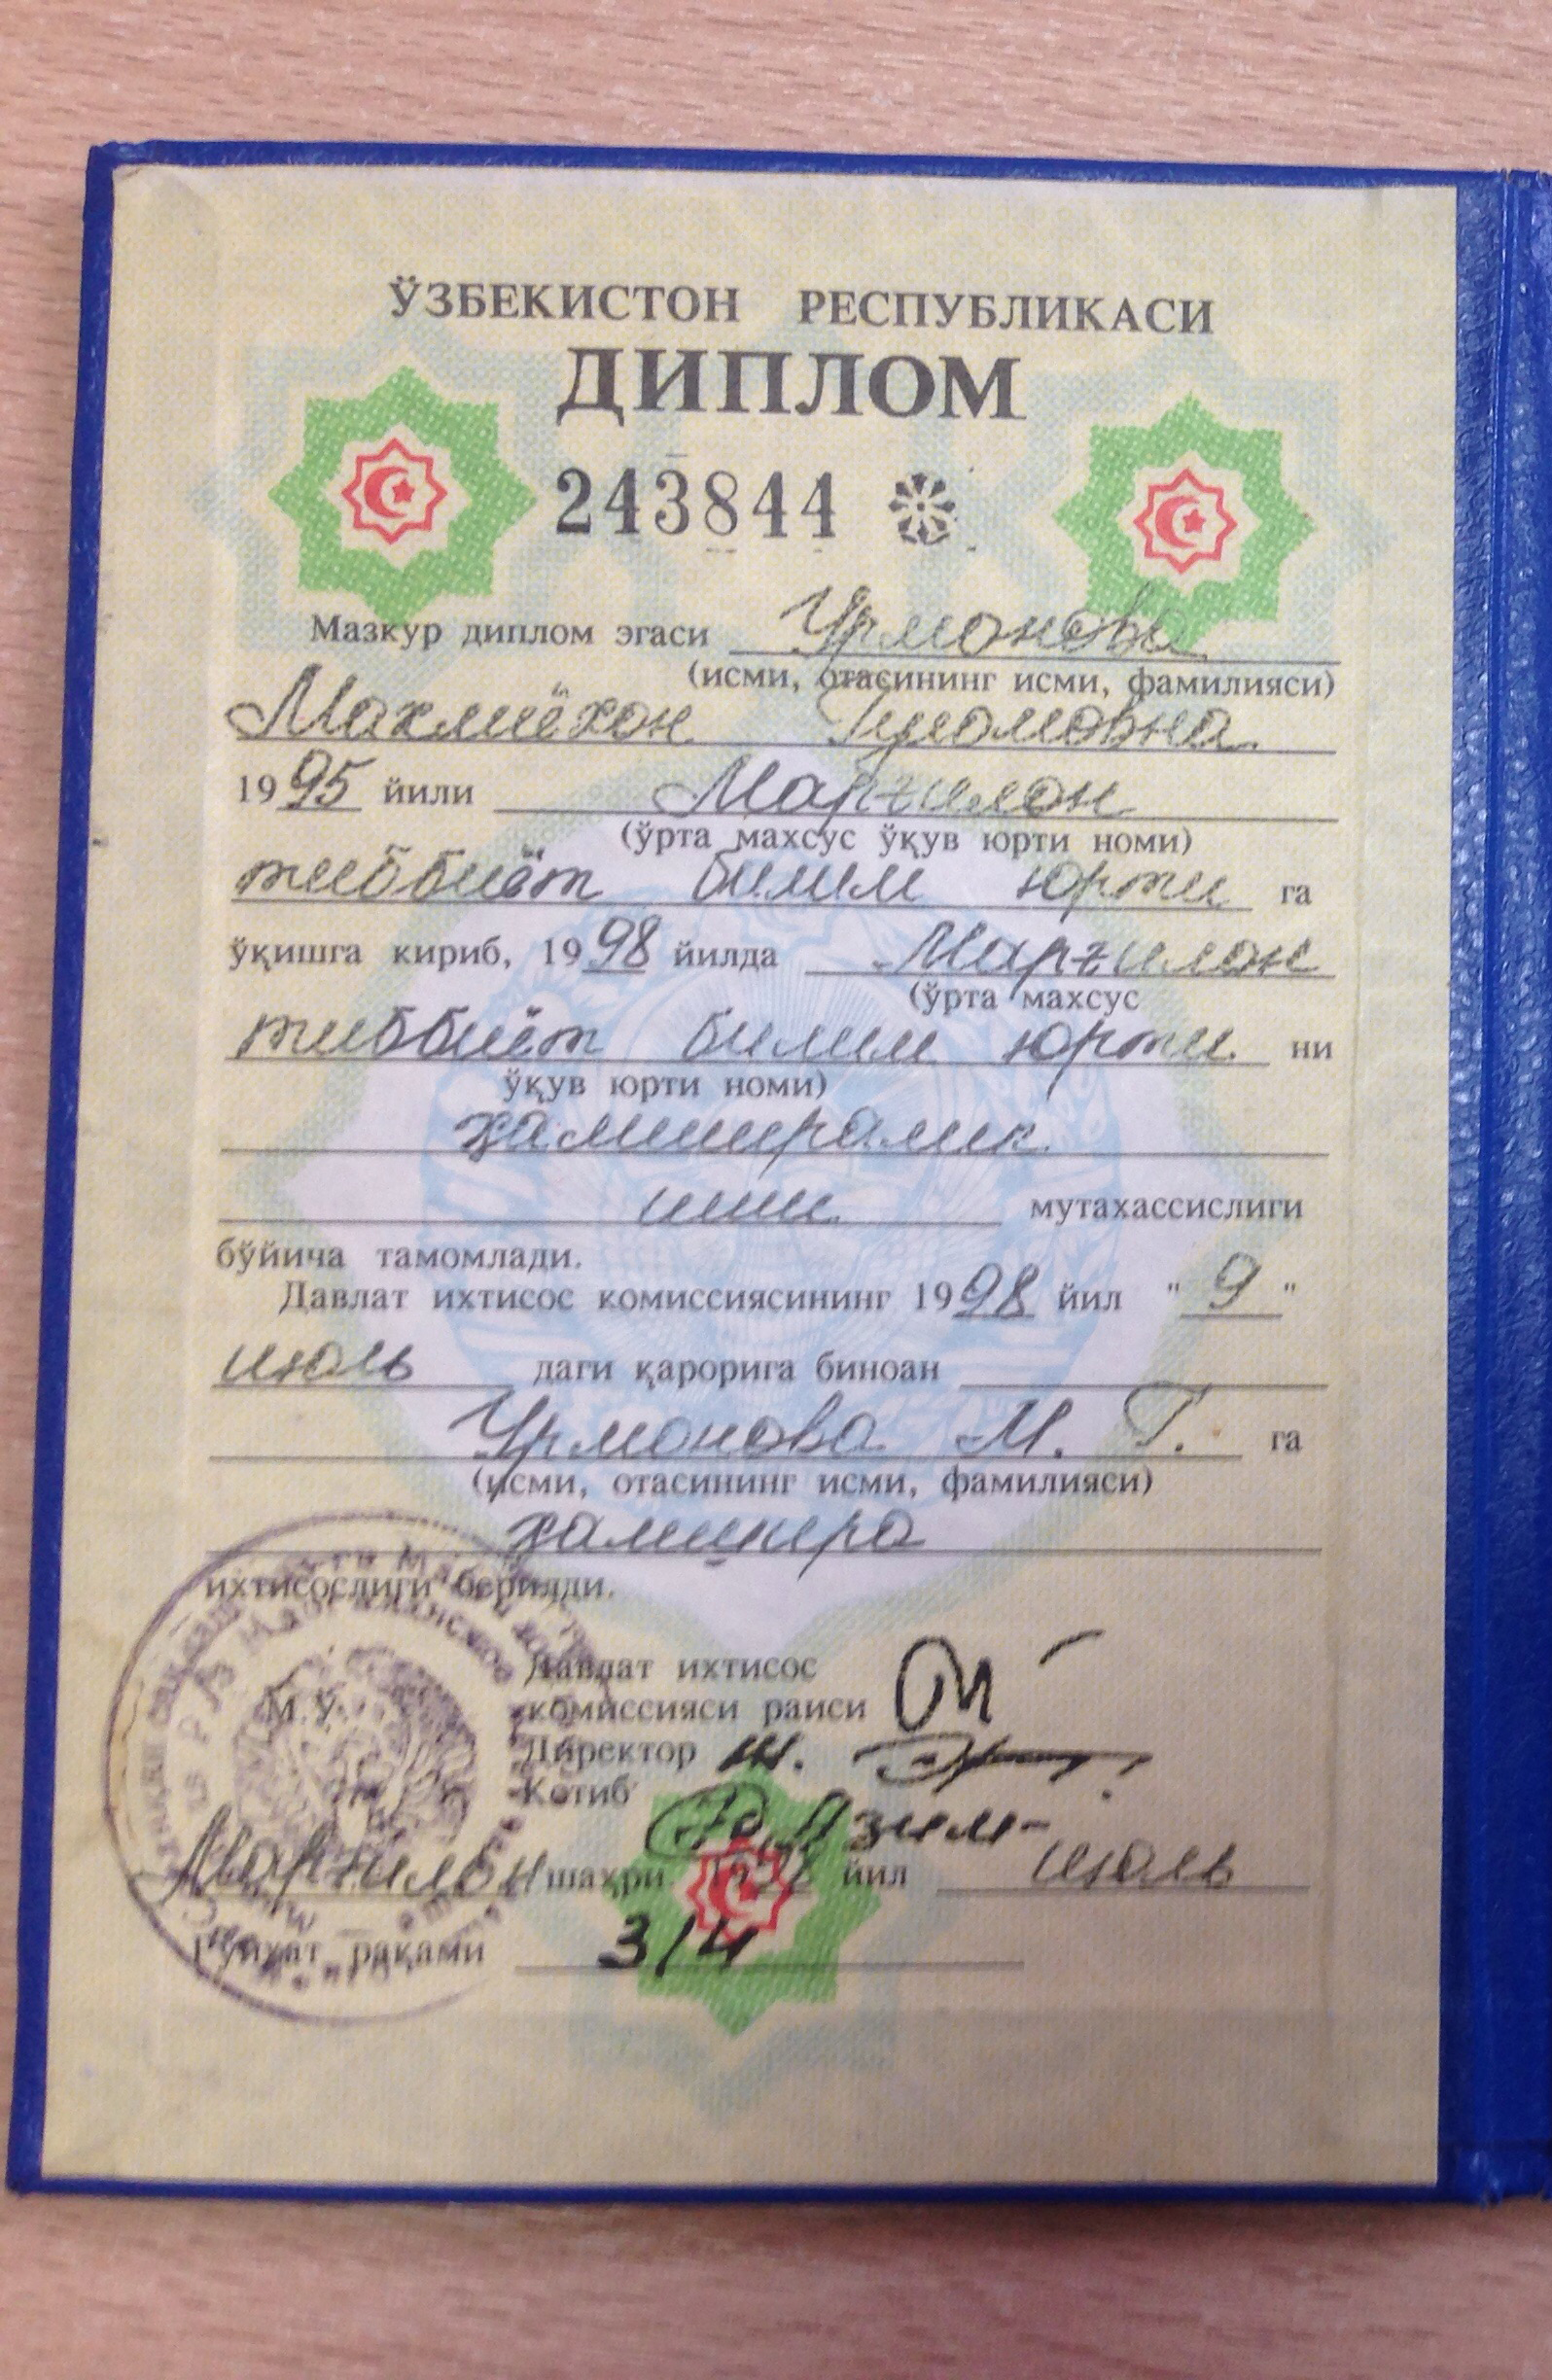 ЎЗБЕКИСТОН РЕСПУБЛИКАСИ
ДИПЛОМ
243844
Мазкур диплом эгаси Урмонова
(исми, отасининг исми, фамилияси)
Махлиёхон Ғуломовна
1995 йили Марғилон
(ўрта махсус ўқув юрти номи)
тиббиёт билим юрти га
ўқишга кириб, 1998 йилда Марғилон
(ўрта махсус
тиббиёт билим юрти ни
ўқув юрти номи)
ҳамширалик
иши мутахассислиги
бўйича тамомлади.
Давлат ихтисос комиссиясининг 1998 йил "9"
июль даги қарорига биноан
Урмонова М. Ғ. га
(исми, отасининг исми, фамилияси)
ҳамшира
ихтисослиги берилди.
Давлат ихтисос
М.Ў. комиссияси раиси
Директор
Котиб
Марғилон шаҳри 1998 йил июль
Рўйхат рақами 314